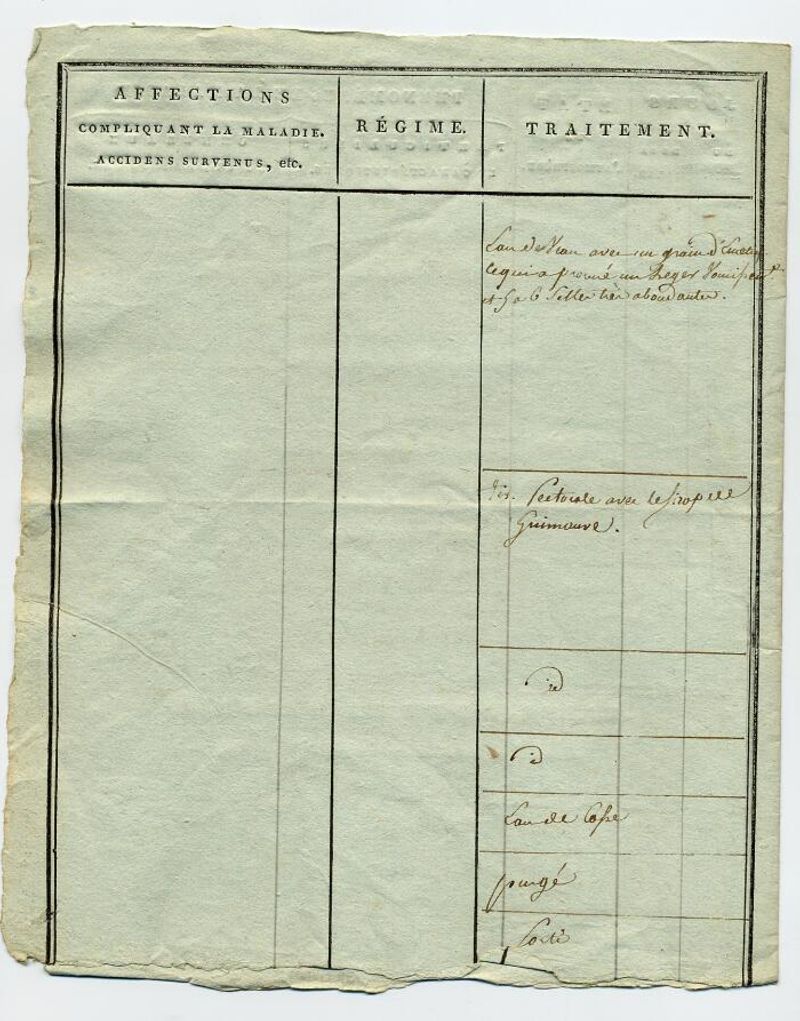 AFFECTIONS
COMPLIQUANT LA MALADIE.
ACCIDENS SURVENUS, etc.
RÉGIME.
TRAITEMENT.
L'eau de Veau avec un grain d'Emetiq
ce qui a procuré un Leger Vomissemt.
et 5 a 6 Selles très abondantes.
Pectorale avec le sirop de
Guimauve.
id
id
L'eau de Casse
purgé
Sorti